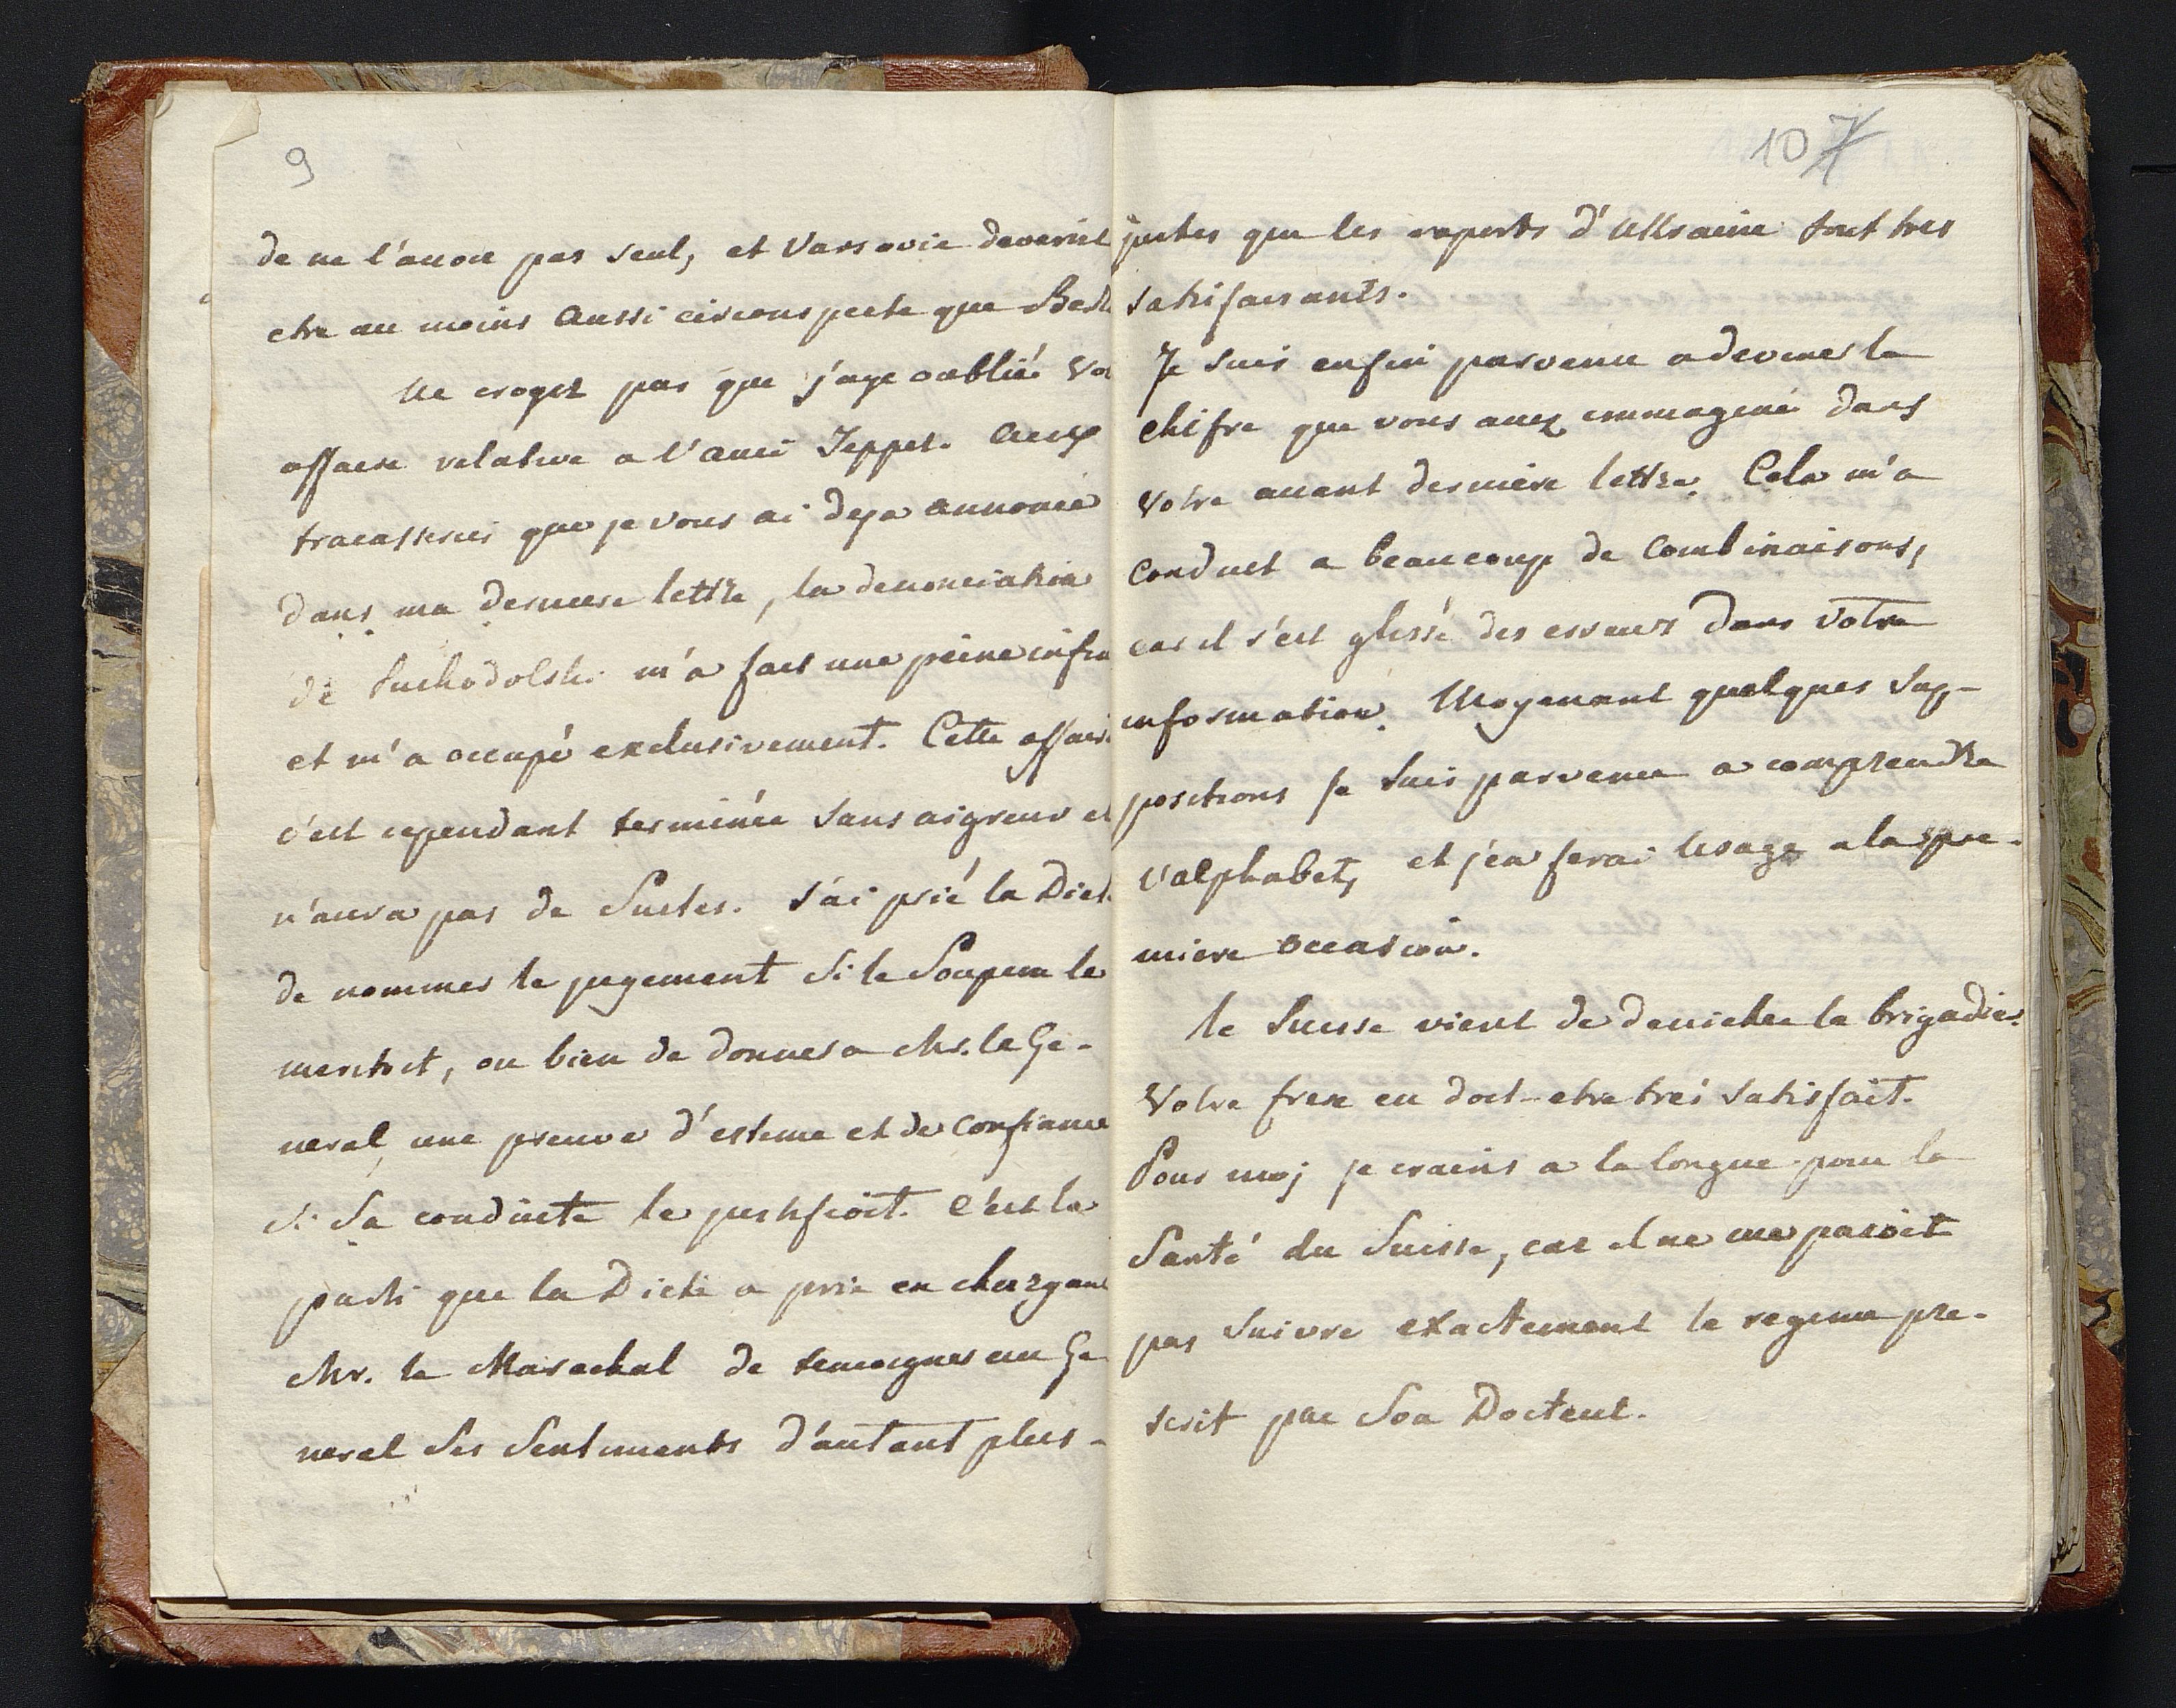 9
de ne l'avoir pas seul, et Varsovie deveroit
etre au moins aussi circonspecte que Berl
Ne croyez pas que j'aye oublié Vo
affaire relative a l'ami Jepper.
tracasseries que je vous ai deja annoncé
dans ma derniere lettre, la denonciation
de Suchodolski m'a fait une peine infin
et m'a occupé exclusivement. Cette affair
s'est cependant terminée sans aigreur et
n'aura pas de Suites. J'ai prié la Diet
de nommer le jugement Si le Soupcon le
meritoit, ou bien de donner a Mr. le Ge-
neral, une preuve d'estime et de confiance
Si Sa conduite le justifioit. C'est le
parti que la Diete a pris en chargeant
Mr. le Marechal de temoigner au Ge
neral Ses Sentiments d'autant plus-
10 7
justes que les raports d'Ukraine sont tres
satisfaisants.
Je suis enfin parvenu a deviner le
chifre que vous avez immaginé dans
Votre avant derniere lettre. Cela m'a
conduit a beaucoup de Combinaisons,
car il s'est glissé des erreurs dans votre
information. Moyenant quelques Sup-
positions je Suis parvenu a comprendre
l'alphabet, et j'en ferai Usage a la pre-
miere occasion.
le Suisse vient de denicher le brigadier.
Votre frere en doit-etre trés satisfait.
Pour moj je crains a la longue pour la
Santé du Suisse, car il ne me paroit
pas Suivre exactement le regime pre-
scrit par Son Docteur.